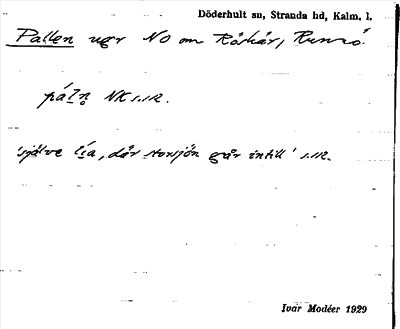 Döderhult sn, Stranda hd, Kalm. l.
Pallen ugr NO om Råskär, Runnö.
páln̥ NK s.112.
'själve lia, där storsjön går intill' s.112.
Ivar Modéer 1929